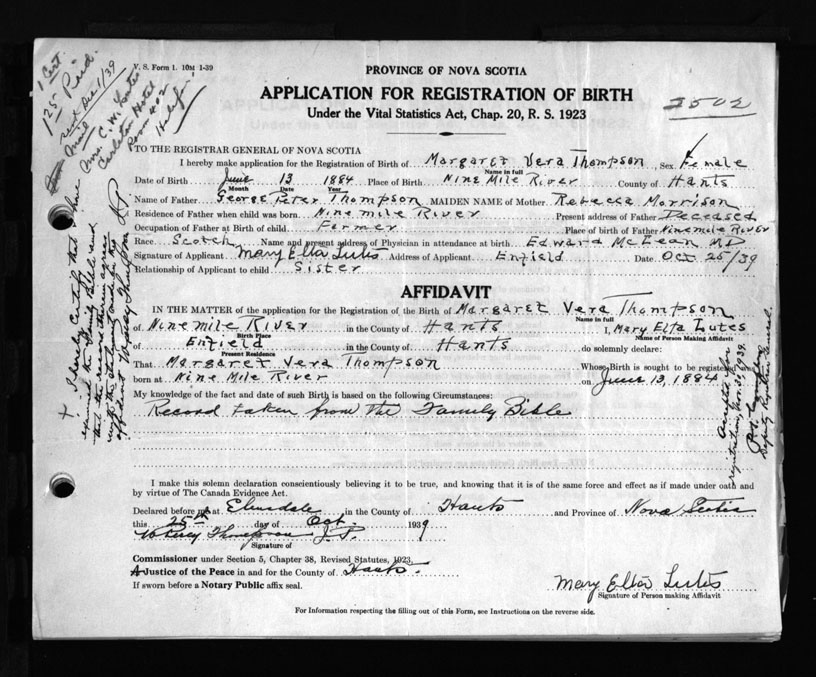 1 Cert.
1.25 Paid.
sent Dec 1/39
Mail
Mrs. C. W.
Carleton Hotel
Room 402
Halifax
V. S. Form 1. 10M 1-39
PROVINCE OF NOVA SCOTIA
APPLICATION FOR REGISTRATION OF BIRTH
2502
Under the Vital Statistics Act, Chap. 20, R. S. 1923
TO THE REGISTRAR GENERAL OF NOVA SCOTIA
I hereby make application for the Registration of Birth of Margaret Vera Thompson, Sex Female
Name in full
Date of Birth June 13 1884 Place of Birth Nine Mile River County of Hants
Month Date Year
Name of Father George Peter Thompson MAIDEN NAME of Mother Rebecca Morrison
Residence of Father when child was born Nine mile River Present address of Father Deceased
Occupation of Father at Birth of child Farmer Place of birth of Father Ninemile River
Race Scotch Name and present address of Physician in attendance at birth Edward McLean MD
Signature of Applicant Mary Elta Lutes Address of Applicant Enfield Date Oct 25/39
Relationship of Applicant to child Sister
AFFIDAVIT
IN THE MATTER of the application for the Registration of the Birth of Margaret Vera Thompson
Name in full
of Nine mile River in the County of Hants I, Mary Elta Lutes
Birth Place Name of Person Making Affidavit
of Enfield in the County of Hants do solemnly declare:
Present Residence
That Margaret Vera Thompson Whose Birth is sought to be registered was
born at Nine Mile River on June 13, 1884
My knowledge of the fact and date of such Birth is based on the following Circumstances:
Record taken from the Family Bible
I make this solemn declaration conscientiously believing it to be true, and knowing that it is of the same force and effect as if made under oath and
by virtue of The Canada Evidence Act.
Declared before me at Elmsdale in the County of Hants and Province of Nova Scotia
this 25th day of Oct. 1939
Percy Thompson J. P.
Signature of
Commissioner under Section 5, Chapter 38, Revised Statutes, 1923.
A Justice of the Peace in and for the County of Hants.
If sworn before a Notary Public affix seal.
Mary Elta Lutes
Signature of Person making Affidavit
For Information respecting the filling out of this Form, see Instructions on the reverse side.
+ I hereby Certify that I have
examined the Family Bible and
that the records therein agree
with the statement made by
affidavit Percy Thompson J P
accepted for
registration, Nov. 30, 1939.
Deputy Registrar General.